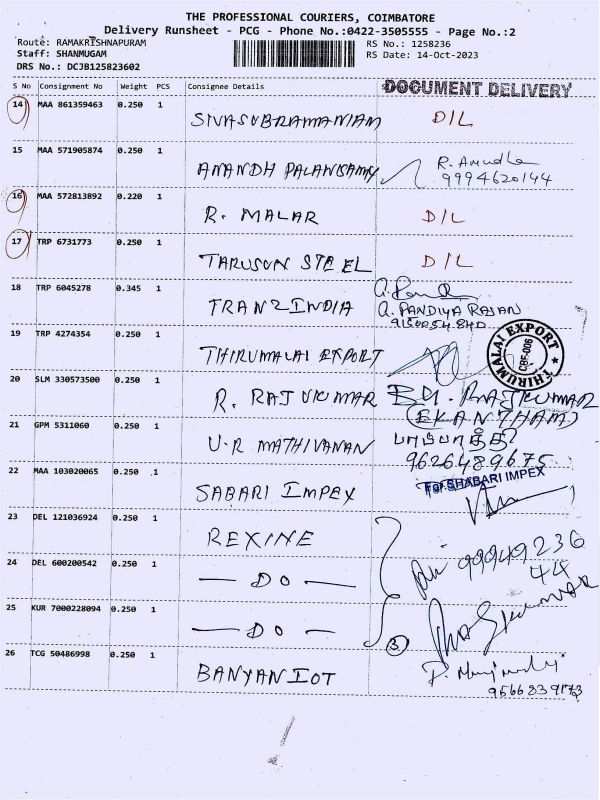 THE PROFESSIONAL COURIERS, COIMBATORE
Delivery Runsheet - PCG - Phone No.:0422-3505555 - Page No.:2
Route: RAMAKRISHNAPURAM
Staff: SHANMUGAM
DRS No.: DCJB125823602
RS No.: 1258236
RS Date: 14-Oct-2023
S No Consignment No Weight PCS Consignee Details DOCUMENT DELIVERY
14 MAA 861359463 0.250 1 SIVASUBRAMANIAM D/L
15 MAA 571905874 0.250 1 ANANDH PALANISAMY R. Amudha
9994620144
16 MAA 572813892 0.220 1 R. MALAR D/L
17 TRP 6731773 0.250 1 TARUSON STEEL D/L
18 TRP 6045278 0.345 1 TRANZINDIA
A. PANDIYA RAJAN
19 TRP 4274354 0.250 1 THIRUMALAI EXPORT
THIRUMALAI EXPORT CBE-006
20 SLM 330573500 0.250 1 R. RAJ UKUMAR BY. RAJKUMAR
(EKANTHAM)
21 GPM 5311060 0.250 1 U.R MATHIVANAN
9626489675
22 MAA 103020065 0.250 .1 SABARI IMPEX For SHABARI IMPEX
23 DEL 121036924 0.250 1 REXINE
99949236
44
24 DEL 600200542 0.250 1 — DO —
25 KUR 7000228094 0.250 1 — DO — 3
26 TCG 50486998 0.250 1 BANYAN IOT
9566339173